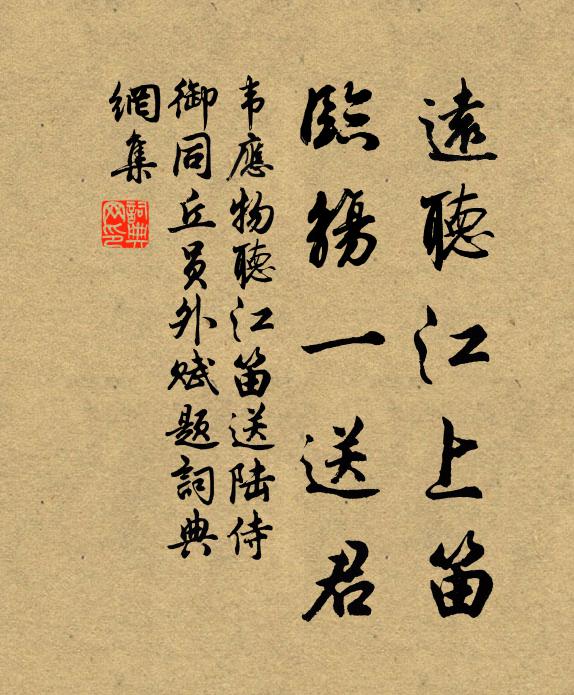 遠聽江上笛
臨觴一送君
韦應物聽江笛送陆侍
御同丘员外赋题詞典
網集
詞典
网印